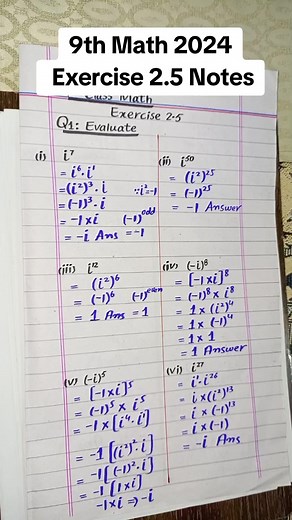 9th Math 2024
Exercise 2.5 Notes
Class Math
Exercise 2.5
Q1: Evaluate
(i) i⁷
= i⁶·i¹
= (i²)³·i ∵i²=-1
= (-1)³·i
= -1×i (-1)ᵒᵈᵈ
= -i Ans = -1
(ii) i⁵⁰
= (i²)²⁵
= (-1)²⁵
= -1 Answer
(iii) i¹²
= (i²)⁶
= (-1)⁶ (-1)ᵉᵛᵉⁿ
= 1 Ans = 1
(iv) (-i)⁸
= [-1×i]⁸
= (-1)⁸×i⁸
= 1×(i²)⁴
= 1×(-1)⁴
= 1×1
= 1 Answer
(v) (-i)⁵
= [-1×i]⁵
= (-1)⁵×i⁵
= -1×[i⁴·i¹]
= -1[(i²)²·i]
= -1[(-1)²·i]
= -1[1×i]
-1×i ⇒ -i
(vi) i²⁷
= i¹·i²⁶
= i×(i²)¹³
= i×(-1)¹³
= i×(-1)
= -i Ans